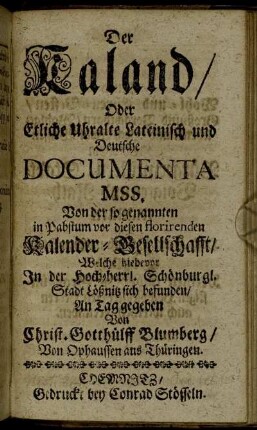 Der
Kaland/
Oder
Etliche Uhralte Lateinisch und
Deutsche
DOCUMENTA
MSS,
Von der so genannten
in Pabstum vor diesen florirenden
Kalender-Gesellschafft/
Welche hiebevor
In der Hoch-herrl. Schönburgl.
Stadt Lößnitz sich befunden/
An Tag gegeben
Von
Christ-Gotthülff Blumberg/
Von Ophaussen aus Thüringen.
CHEMNITZ/
Gedruckt bey Conrad Stösseln.